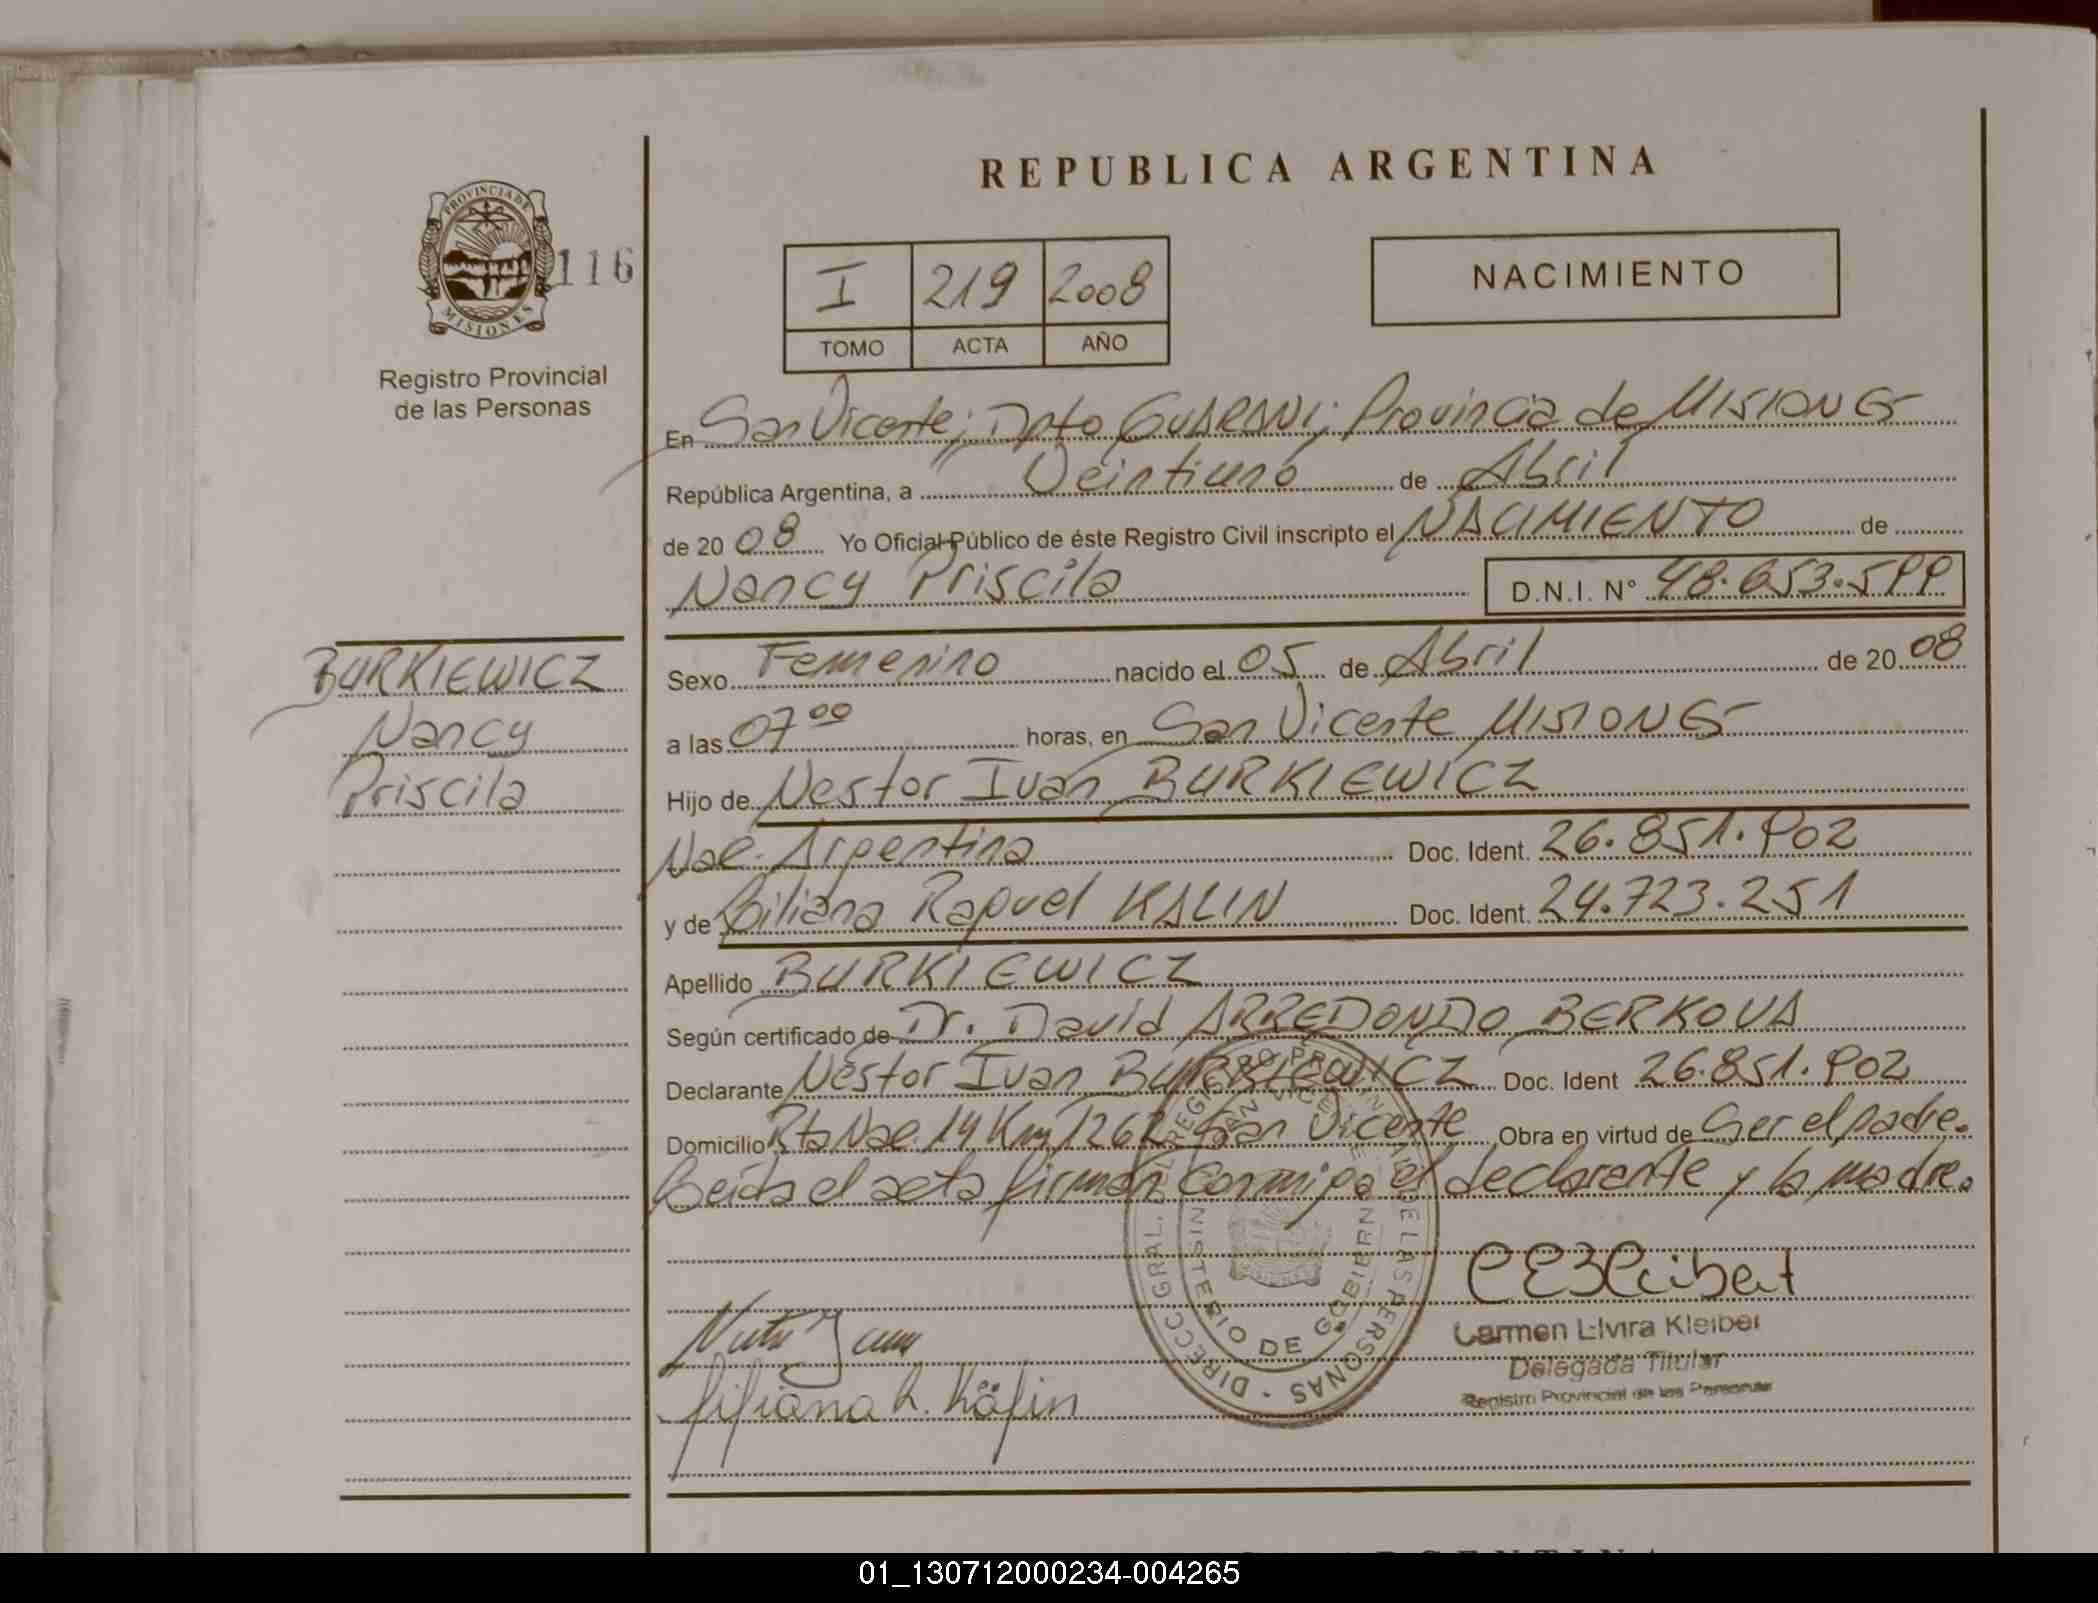 REPUBLICA ARGENTINA
PROVINCIA DE
MISIONES
116
Registro Provincial
de las Personas
I 219 2008
TOMO ACTA AÑO
NACIMIENTO
En San Vicente; Dpto GUARANI; Provincia de MISIONES
República Argentina, a Veintiuno de Abril
de 2008 Yo Oficial Público de éste Registro Civil inscripto el NACIMIENTO de
Nancy Priscila D.N.I. N° 48.653.599
BURKIEWICZ
Nancy
Priscila
Sexo Femenino nacido el 05 de Abril de 2008
a las 07 00 horas, en San Vicente MISIONES
Hijo de Nestor Ivan BURKIEWICZ
Nac. Argentina Doc. Ident. 26.851.902
y de Liliana Raquel KALIN Doc. Ident. 24.723.251
Apellido BURKIEWICZ
Según certificado de Dr. David ARREDONDO BERKOVA
Declarante Nestor Ivan BURKIEWICZ Doc. Ident 26.851.902
Domicilio Rta Nac. 14 Km 1262 San Vicente Obra en virtud de Ser el padre.
Leida el acta firman conmigo el declarante y la madre.
DIRECC. GRAL. DEL REGISTRO PROVINCIAL DE LAS PERSONAS
MINISTERIO DE GOBIERNO
SAN VICENTE
Carmen Elvira Kleiber
Delegada Titular
Registro Provincial de las Personas
Liliana R. Kälin
01_130712000234-004265